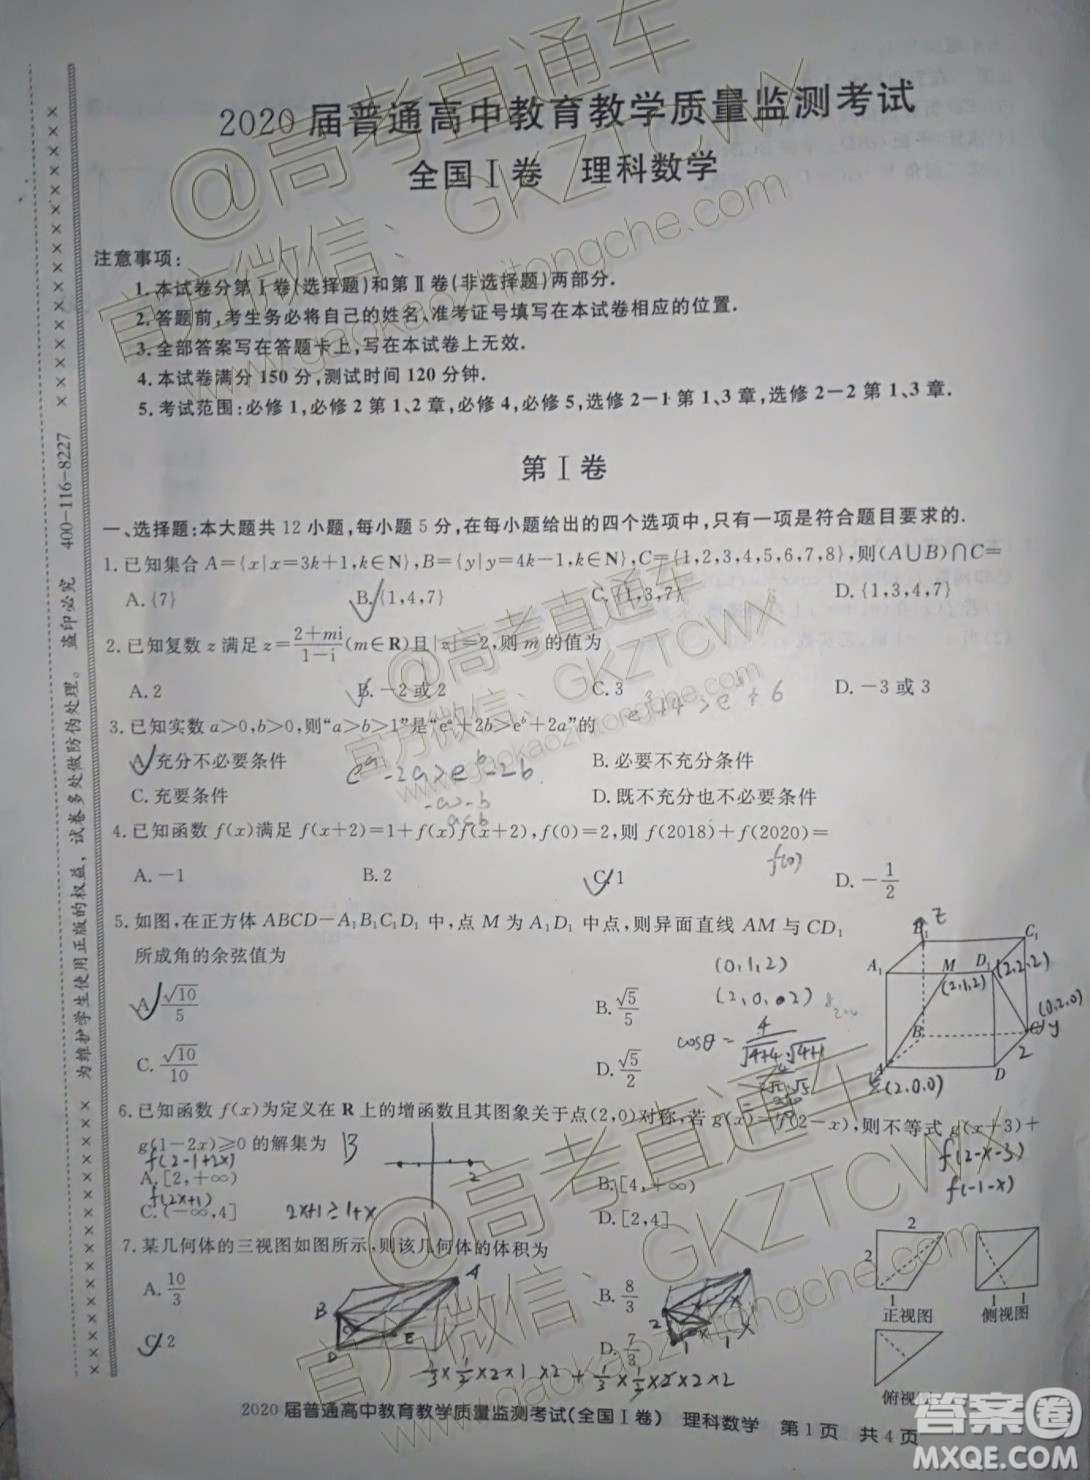 2020届普通高中教育教学质量监测考试
全国Ⅰ卷 理科数学
注意事项:
1.本试卷分第Ⅰ卷(选择题)和第Ⅱ卷(非选择题)两部分.
2.答题前,考生务必将自己的姓名、准考证号填写在本试卷相应的位置.
3.全部答案写在答题卡上,写在本试卷上无效.
4.本试卷满分150分,测试时间120分钟.
5.考试范围:必修1,必修2第1、2章,必修4,必修5,选修2-1第1、3章,选修2-2第1、3章.
第Ⅰ卷
一、选择题:本大题共12小题,每小题5分,在每小题给出的四个选项中,只有一项是符合题目要求的.
1.已知集合A={x|x=3k+1,k∈N},B={y|y=4k-1,k∈N},C={1,2,3,4,5,6,7,8},则(A∪B)∩C=
A.{7} B.{1,4,7} C.{1,3,7} D.{1,3,4,7}
2.已知复数z满足z=(2+mi)/(1-i)(m∈R)且|z|=2,则m的值为
A.2 B.-2或2 C.3 D.-3或3
3.已知实数a>0,b>0,则“a>b>1”是“eᵃ+2b>eᵇ+2a”的
A.充分不必要条件 B.必要不充分条件
C.充要条件 D.既不充分也不必要条件
eᵃ-2a>eᵇ-2b
-a>-b
a<b
4.已知函数f(x)满足f(x+2)=1+f(x)f(x+2),f(0)=2,则f(2018)+f(2020)=
f(0)
A.-1 B.2 C.1 D.-1/2
5.如图,在正方体ABCD-A₁B₁C₁D₁中,点M为A₁D₁中点,则异面直线AM与CD₁
所成角的余弦值为
A.√10/5 B.√5/5
C.√10/10 D.√5/2
(0,1,2)
(2,0,02)
cosθ=4/(√4+4·√4+1)
z
A₁ M D₁ C₁
(2,1,2) (2,2,2)
(0,2,0)
B y
A D
(2,0,0)
6.已知函数f(x)为定义在R上的增函数且其图象关于点(2,0)对称,若g(x)=f(2-x),则不等式g(x+3)+
g(1-2x)≥0的解集为 B
f(2-1+2x)
f(2-x-3)
A.[2,+∞) B.[4,+∞)
f(2x+1)
f(-1-x)
C.(-∞,4] D.[2,4]
2x+1≥1+x
7.某几何体的三视图如图所示,则该几何体的体积为
A.10/3 B.8/3
C.2 D.7/3
A B D E
1/3×1/2×2×1×2+1/3×1/2×2×2×2
2 2 1 1 1
正视图 侧视图
俯视图
2020届普通高中教育教学质量监测考试(全国Ⅰ卷) 理科数学 第1页 共4页
为维护学生使用正版的权益,试卷多处做防伪处理。 盗印必究 400-116-8227
@高考直通车
官方微信:GKZTCWX
www.gaokaozhitongche.com
@高考直通车
官方微信:GKZTCWX
www.gaokaozhitongche.com
@高考直通车
官方微信:GKZTCWX
www.gaokaozhitongche.com
答案圈
MXQE.COM